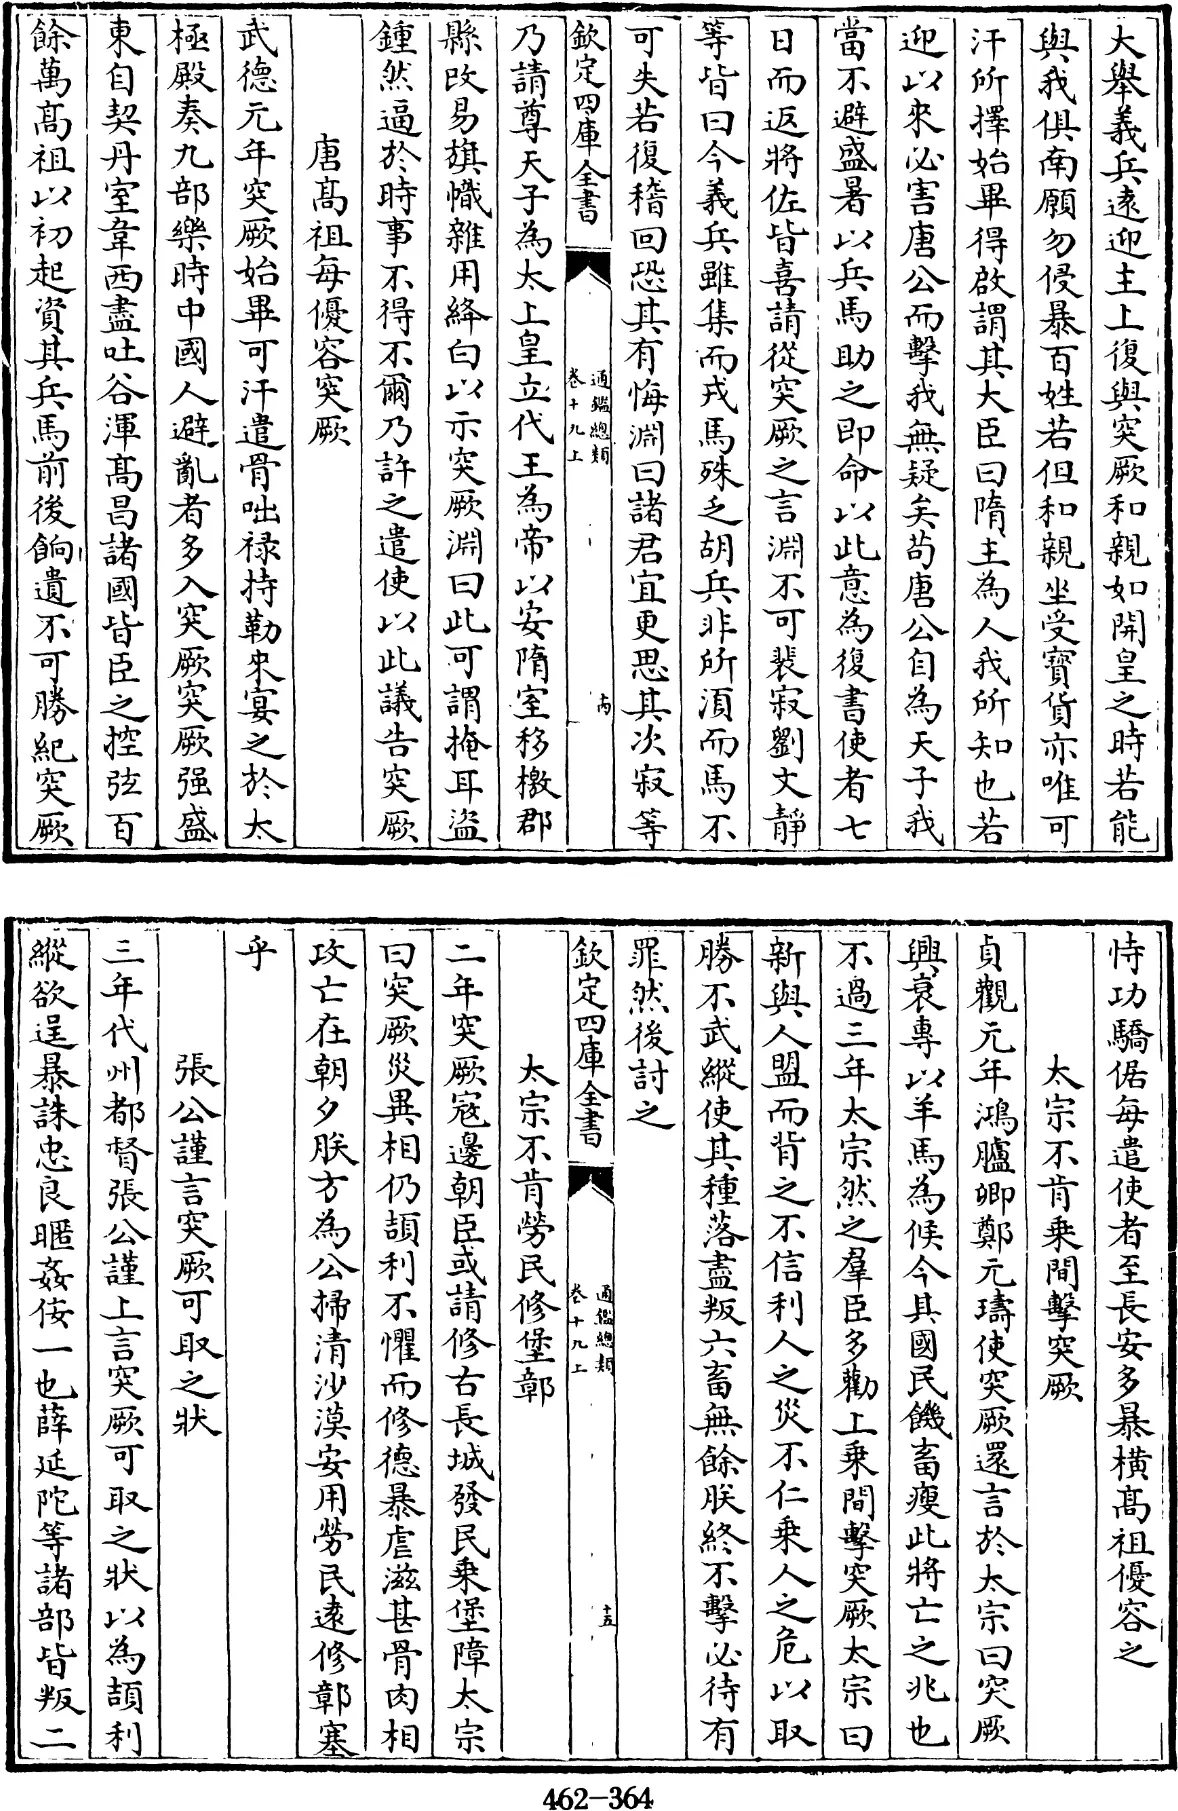 大舉義兵逺迎主上復與突厥和親如開皇之時若能
與我俱南願勿侵暴百姓若但和親坐受寳貨亦唯可
汗所擇始畢得啟謂其大臣曰隋主為人我所知也若
迎以來必害唐公而擊我無疑矣苟唐公自為天子我
當不避盛暑以兵馬助之即命以此意為復書使者七
日而返將佐皆喜請從突厥之言淵不可裴寂劉文靜
等皆曰今義兵雖集而戎馬殊乏胡兵非所湏而馬不
可失若復稽回恐其有悔淵曰諸君宜更思其次寂等
欽定四庫全書
通鑑總類
卷十九上
乃請尊天子為太上皇立代王為帝以安隋室移檄郡
縣改易旗幟雜用絳白以示突厥淵曰此可謂掩耳盜
鍾然逼於時事不得不爾乃許之遣使以此議告突厥
唐髙祖每優容突厥
武德元年突厥始畢可汗遣骨咄禄持勒來宴之於太
極殿奏九部樂時中國人避亂者多入突厥突厥强盛
東自契丹室韋西盡吐谷渾髙昌諸國皆臣之控弦百
餘萬髙祖以初起資其兵馬前後餉遺不可勝紀突厥
恃功驕倨每遣使者至長安多暴横髙祖優容之
太宗不肯乗間擊突厥
貞觀元年鴻臚卿鄭元璹使突厥還言於太宗曰突厥
興衰專以羊馬為候今其國民饑畜瘦此將亡之兆也
不過三年太宗然之羣臣多勸上乗間擊突厥太宗曰
新與人盟而背之不信利人之災不仁乗人之危以取
勝不武縱使其種落盡叛六畜無餘朕終不擊必待有
罪然後討之
欽定四庫全書
通鑑總類
卷十九上
十五
太宗不肯勞民修堡鄣
二年突厥寇邊朝臣或請修古長城發民乗堡障太宗
曰突厥災異相仍頡利不懼而修德暴虐滋甚骨肉相
攻亡在朝夕朕方為公掃清沙漠安用勞民逺修鄣塞
乎
張公謹言突厥可取之狀
三年代州都督張公謹上言突厥可取之狀以為頡利
縱欲逞暴誅忠良暱姦佞一也薛延陀等諸部皆叛二
462-364